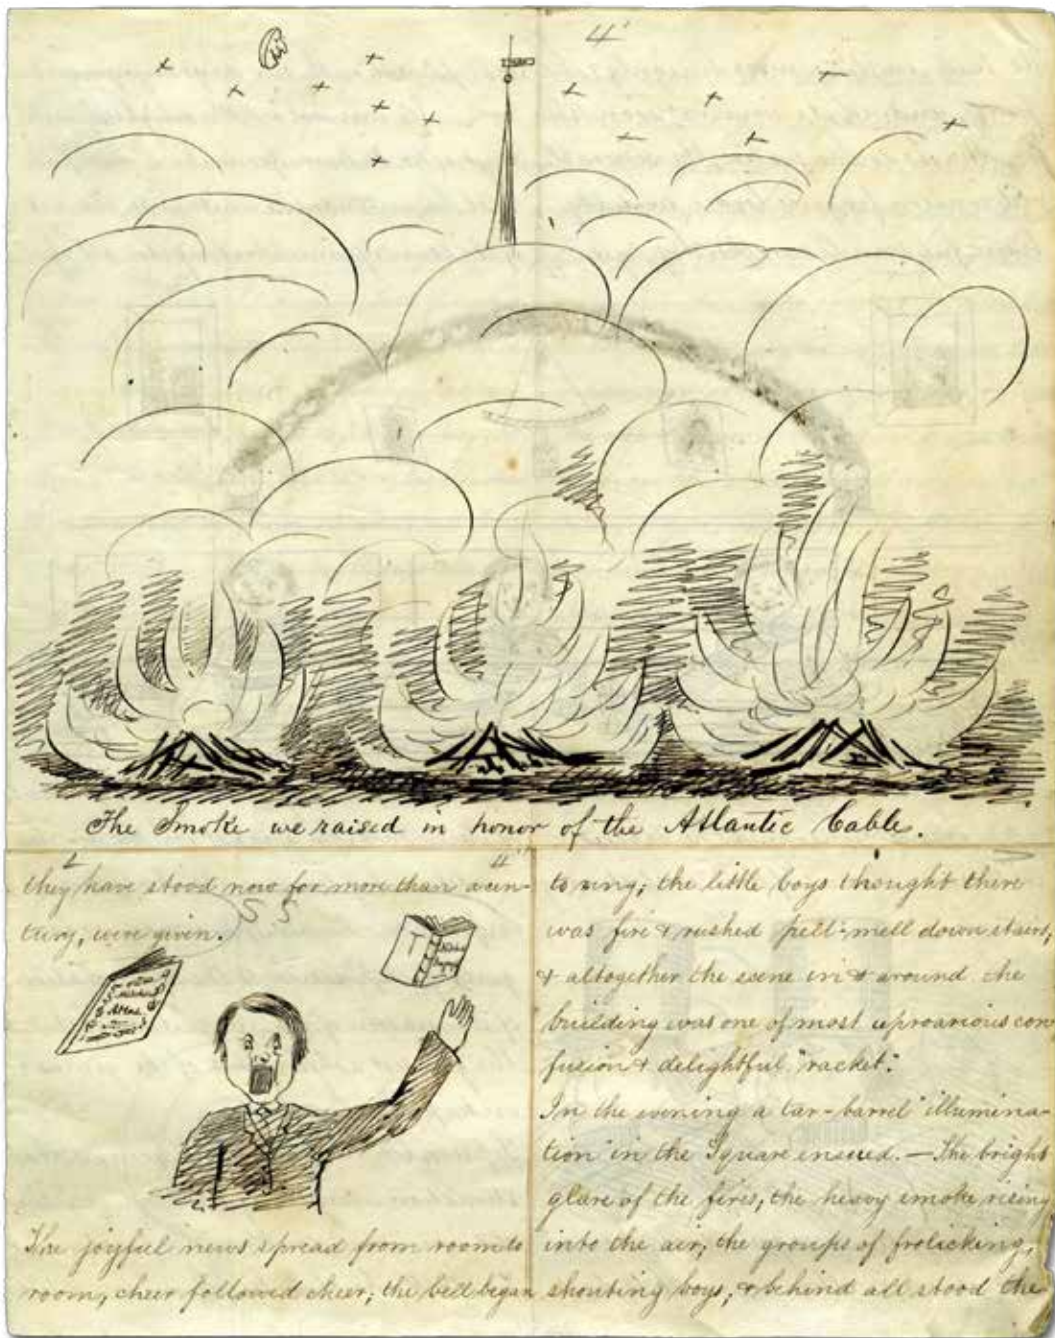 4
The Smoke we raised in honor of the Atlantic Cable.
they have stood now for more than a cen-
tury, were given.
Atlas
The joyful news spread from room to
room, cheer followed cheer; the bell began
4
to ring; the little boys thought there
was fire & rushed pell-mell down stairs;
& altogether the scene in & around the
building was one of most uproarious con
fusion & delightful "racket".
In the evening a tar-barrel illumina-
tion in the Square ensued. — The bright
glare of the fires, the heavy smoke rising
into the air, the groups of frolicking,
shouting boys, & behind all stood the